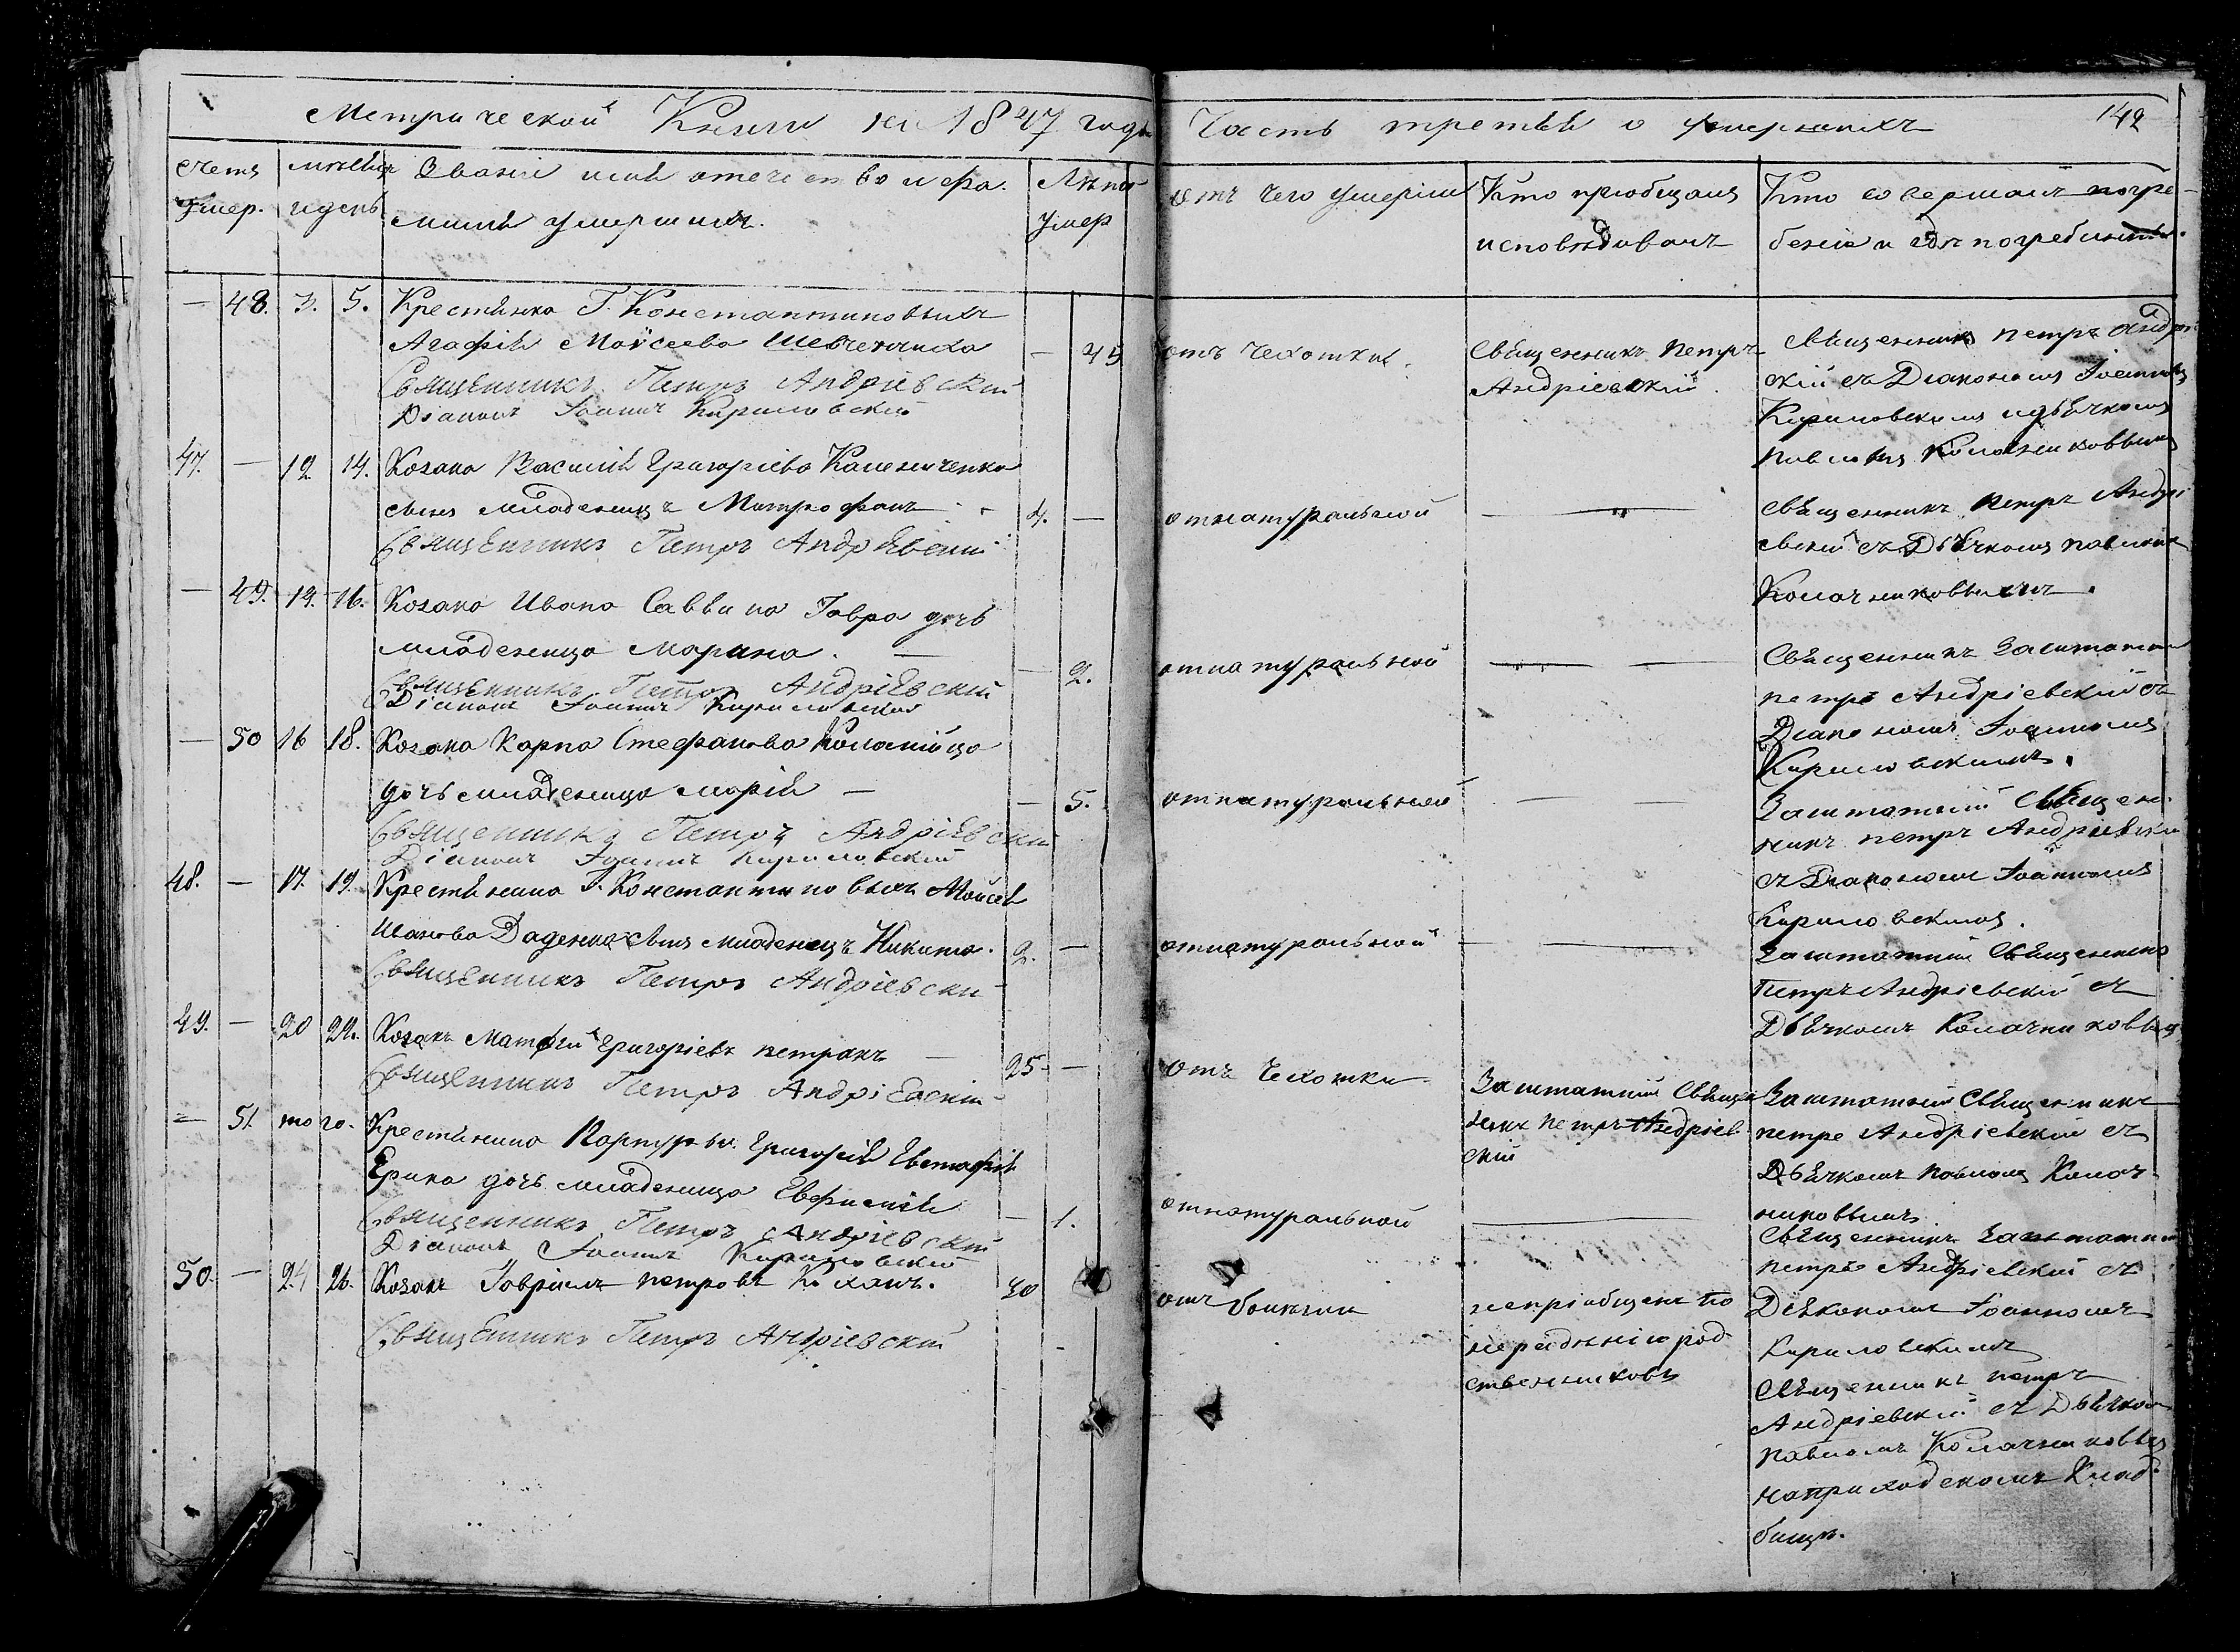 Метрической Книги на 1847 годъ Часть третья о умершихъ 142
Счетъ умер.
месяцъ и день
Званіе имя отечество и фа-
милія умершихъ.
Лѣта умер
отъ чего умеръ
Кто пріобщалъ
исповѣдовалъ
Кто совершалъ погре-
беніе и гдѣ погребены.
— 48. 3. 5. Крестянка Г. Константиновыхъ
Агафія Моисеева Шевченкова — 45 отъ чехотки.
Священникъ Петръ Андріевскій
Діаконъ Іоаннъ Кириловскій
Священникъ Петръ
Андріевскій
Священникъ петръ Андріев
скій съ Діакономъ Іоанномъ
Кириловскимъ и дьячкомъ
Павломъ Колачниковымъ
47. — 12 14. Козака Василія Григоріева
сынъ младенецъ Митрофанъ 4. — отнатуральной —
Священникъ Петръ Андріевскій
Священникъ Петръ Андрі
евскій съ Дьячкомъ павломъ
Колачниковымъ.
— 49. 14. 16. Козака Ивана Саввина Гавра дочь
младеница Марина. — 2. отнатуральной —
Священникъ Петръ Андріевскій
Діаконъ Іоаннъ Кириловскій
Священникъ Заштатній
петръ Андріевскій съ
Діакономъ Іоанномъ
Кириловскимъ.
— 50 16 18. Козака Карпа Стефанова
дочь младеница марія — 5. отнатуральной —
Священникъ Петръ Андріевскій
Діаконъ Іоаннъ Кириловскій
Заштатній Священ-
никъ петръ Андріевскій
съ Діакономъ Іоанномъ
Кириловскимъ.
48. — 17. 19. Крестянина Г. Константиновыхъ Моисея
Иванова Даденка сынъ младенецъ Никита. 2. — отнатуральной —
Священникъ Петръ Андріевскій
Заштатній Священникъ
Петръ Андріевскій съ
Дьячкомъ Колачниковымъ
49. — 20 22. Козакъ Матфій Григоріевъ петракъ — 25 — отъ Чехотки
Священникъ Петръ Андріевскій
Заштатній Священ
никъ петръ Андріев
скій
Заштатній Священникъ
петръ Андріевскій съ
Дьячкомъ павломъ Колач-
никовымъ
— 51. того. Крестянина Григорія Евстафія
дочь младеница — 1. отнатуральной —
Священникъ Петръ Андріевскій
Діаконъ Іоаннъ Кириловскій
Священникъ Заштатній
петръ Андріевскій съ
Діякономъ Іоанномъ
Кириловскимъ
50. — 24 26. Козакъ Гавріилъ петровъ 40 - отъ болезни
Священникъ Петръ Андріевскій
непріобщенъ по
нерадѣнію род
ственниковъ
Священникъ петръ
Андріевскій съ Дьячком
павломъ Колачниковымъ
наприходскомъ Клад-
бищѣ.